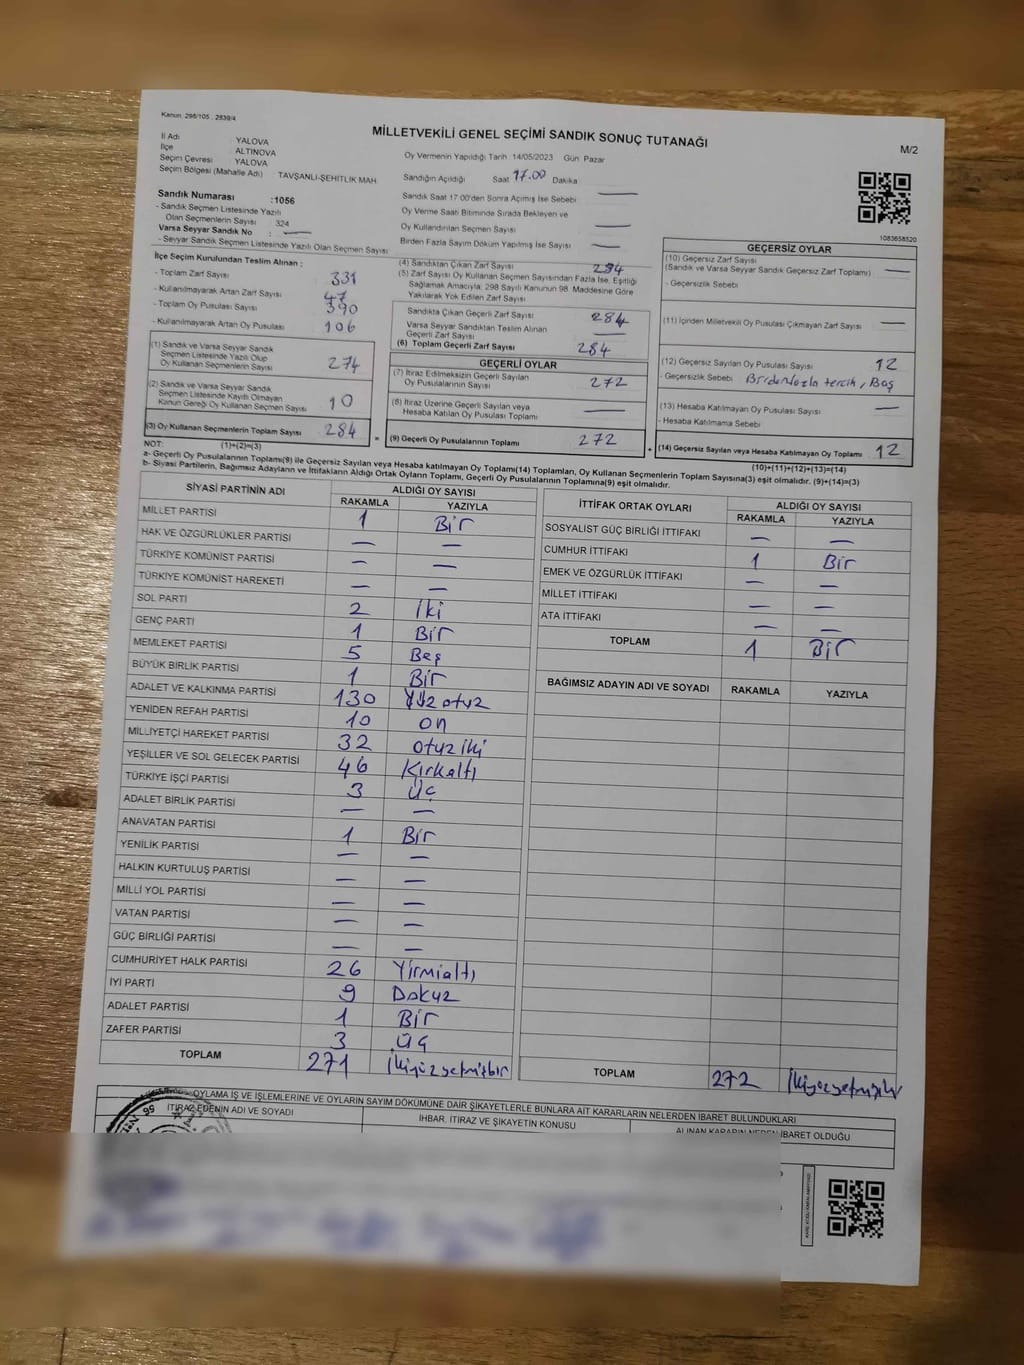 Kanun 298/105 , 2839/4
MİLLETVEKİLİ GENEL SEÇİMİ SANDIK SONUÇ TUTANAĞI
M/2
İl Adı YALOVA
İlçe ALTINOVA
Seçim Çevresi YALOVA
Seçim Bölgesi (Mahalle Adı) TAVŞANLI-ŞEHİTLİK MAH
Oy Vermenin Yapıldığı Tarih 14/05/2023 Gün Pazar
Sandığın Açıldığı Saat 17.00 Dakika
Sandık Numarası :1056
- Sandık Seçmen Listesinde Yazılı
Olan Seçmenlerin Sayısı 324
Varsa Seyyar Sandık No : —
- Seyyar Sandık Seçmen Listesinde Yazılı Olan Seçmen Sayısı
Sandık Saat 17:00'den Sonra Açımış İse Sebebi —
Oy Verme Saati Bitiminde Sırada Bekleyen ve
Oy Kullandırılan Seçmen Sayısı —
Birden Fazla Sayım Döküm Yapılmış İse Sayısı —
1083658520
İlçe Seçim Kurulundan Teslim Alınan :
- Toplam Zarf Sayısı 331
- Kullanılmayarak Artan Zarf Sayısı 47
- Toplam Oy Pusulası Sayısı 390
- Kullanılmayarak Artan Oy Pusulası 106
(1) Sandık ve Varsa Seyyar Sandık
Seçmen Listesinde Yazılı Olup
Oy Kullanan Seçmenlerin Sayısı 274
(2) Sandık ve Varsa Seyyar Sandık
Seçmen Listesinde Kayıtlı Olmayan
Kanun Gereği Oy Kullanan Seçmen Sayısı 10
(3) Oy Kullanan Seçmenlerin Toplam Sayısı 284
(4) Sandıktan Çıkan Zarf Sayısı 284
(5) Zarf Sayısı Oy Kullanan Seçmen Sayısından Fazla İse, Eşitliği
Sağlamak Amacıyla, 298 Sayılı Kanunun 98. Maddesine Göre
Yakılarak Yok Edilen Zarf Sayısı
Sandıkta Çıkan Geçerli Zarf Sayısı 284
Varsa Seyyar Sandıktan Teslim Alınan
Geçerli Zarf Sayısı —
(6) Toplam Geçerli Zarf Sayısı 284
GEÇERLİ OYLAR
(7) İtiraz Edilmeksizin Geçerli Sayılan
Oy Pusulalarının Sayısı 272
(8) İtiraz Üzerine Geçerli Sayılan veya
Hesaba Katılan Oy Pusulaları Toplamı —
= (9) Geçerli Oy Pusulalarının Toplamı 272
GEÇERSİZ OYLAR
(10) Geçersiz Zarf Sayısı
(Sandık ve Varsa Seyyar Sandık Geçersiz Zarf Toplamı) —
- Geçersizlik Sebebi
(11) İçinden Milletvekili Oy Pusulası Çıkmayan Zarf Sayısı —
(12) Geçersiz Sayılan Oy Pusulası Sayısı 12
- Geçersizlik Sebebi Birdenfazla tercih, Boş
(13) Hesaba Katılmayan Oy Pusulası Sayısı —
- Hesaba Katılmama Sebebi
+ (14) Geçersiz Sayılan veya Hesaba Katılmayan Oy Toplamı 12
NOT: (1)+(2)=(3)
(10)+(11)+(12)+(13)=(14)
a- Geçerli Oy Pusulalarının Toplamı(9) ile Geçersiz Sayılan veya Hesaba katılmayan Oy Toplamı(14) Toplamları, Oy Kullanan Seçmenlerin Toplam Sayısına(3) eşit olmalıdır. (9)+(14)=(3)
b- Siyasi Partilerin, Bağımsız Adayların ve İttifakların Aldığı Ortak Oyların Toplamı, Geçerli Oy Pusulalarının Toplamına(9) eşit olmalıdır.
SİYASİ PARTİNİN ADI ALDIĞI OY SAYISI
RAKAMLA YAZIYLA
MİLLET PARTİSİ 1 Bir
HAK VE ÖZGÜRLÜKLER PARTİSİ — —
TÜRKİYE KOMÜNİST PARTİSİ — —
TÜRKİYE KOMÜNİST HAREKETİ — —
SOL PARTİ 2 iki
GENÇ PARTİ 1 Bir
MEMLEKET PARTİSİ 5 Beş
BÜYÜK BİRLİK PARTİSİ 1 Bir
ADALET VE KALKINMA PARTİSİ 130 Yüz otuz
YENİDEN REFAH PARTİSİ 10 on
MİLLİYETÇİ HAREKET PARTİSİ 32 otuz iki
YEŞİLLER VE SOL GELECEK PARTİSİ 46 Kırkaltı
TÜRKİYE İŞÇİ PARTİSİ 3 Üç
ADALET BİRLİK PARTİSİ — —
ANAVATAN PARTİSİ 1 Bir
YENİLİK PARTİSİ — —
HALKIN KURTULUŞ PARTİSİ — —
MİLLİ YOL PARTİSİ — —
VATAN PARTİSİ — —
GÜÇ BİRLİĞİ PARTİSİ — —
CUMHURİYET HALK PARTİSİ 26 Yirmialtı
İYİ PARTİ 9 Dokuz
ADALET PARTİSİ 1 Bir
ZAFER PARTİSİ 3 Üç
TOPLAM 271 ikiyüzyetmişbir
İTTİFAK ORTAK OYLARI ALDIĞI OY SAYISI
RAKAMLA YAZIYLA
SOSYALİST GÜÇ BİRLİĞİ İTTİFAKI — —
CUMHUR İTTİFAKI 1 Bir
EMEK VE ÖZGÜRLÜK İTTİFAKI — —
MİLLET İTTİFAKI — —
ATA İTTİFAKI — —
TOPLAM 1 Bir
BAĞIMSIZ ADAYIN ADI VE SOYADI RAKAMLA YAZIYLA
TOPLAM 272
OYLAMA İŞ VE İŞLEMLERİNE VE OYLARIN SAYIM DÖKÜMÜNE DAİR ŞİKAYETLERLE BUNLARA AİT KARARLARIN NELERDEN İBARET BULUNDUKLARI
İTİRAZ EDENİN ADI VE SOYADI
İHBAR, İTİRAZ VE ŞİKAYETİN KONUSU
ALINAN KARARIN NEDEN İBARET OLDUĞU